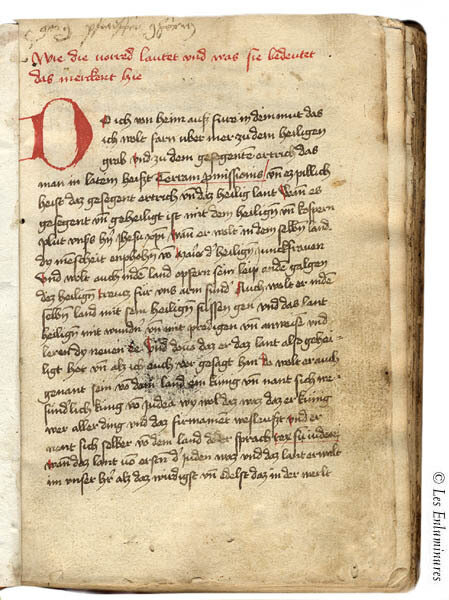 Wie die vorred lautet vnd was sie bedeutet
das merckent hie
Do ich von heim auß fure in dem mut das
ich wolt farn uber mer zu dem heiligen
grab vnd zu dem gesegente ertrich das
man in latein heißt Terram pmissionis vn̄ ez pillich
heist daz gesegent ertrich vn̄ daz heilig lant Wān es
gesegent vn̄ geheiligt ist mit dem heiligen vn̄ kospern
plut vnsß hn̄ Jhesu xpī wan̄ er wolt in dem selbn̄ land
do mescheit enpfohen vō maie d' heiligen junckfrauen
Vnd wolt auch in dem land opfern sein leip an de galgen
des heiligen creucz fur vns arm sund' Auch wolt er in dē
selbn̄ land mit sein heiligen fussen gen vnd das lant
heiligen mit wundn̄ vn̄ mit predigen vn̄ anweise vnd
leren dy neuen ee Vnd dovo daz er daz lant also gehei-
ligt hot vn̄ als ich euch vor gesagt hin So wolt er auch
genant sein vō dem land ein kung vn̄ nant sich we-
sundlich kung vō judea wy wol daz waz daz er kung
wer aller ding vnd daz firmament
nant sich selber vō dem land do er sprach rex su iudeor
Wān daz lant
im vnser hr̄ als daz wirdigst vn̄ edelst daz in der werlt
© Les Enluminures